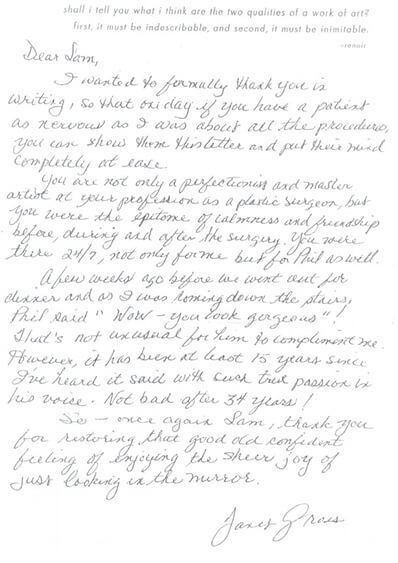 shall i tell you what i think are the two qualities of a work of art?
first, it must be indescribable, and second, it must be inimitable.
-renoir
Dear Sam,
I wanted to formally thank you in
writing, so that one day if you have a patient
as nervous as I was about all the procedures,
you can show them this letter and put their mind
completely at ease.
You are not only a perfectionist and master
artist at your profession as a plastic surgeon, but
you were the epitome of calmness and friendship
before, during and after the surgery. You were
there 24/7, not only for me but for Phil as well.
A few weeks ago before we went out for
dinner and as I was coming down the stairs,
Phil said "Wow - you look gorgeous"!
That's not unusual for him to compliment me.
However, it has been at least 15 years since
I've heard it said with such true passion in
his voice. Not bad after 34 years!
So - once again Sam, thank you
for restoring that good old confident
feeling of enjoying the sheer joy of
just looking in the mirror.
Janet Gross